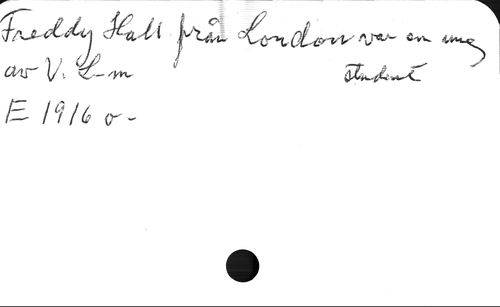 Freddy Hall från London var en ung
student
av V. L-m
E 1916 o -